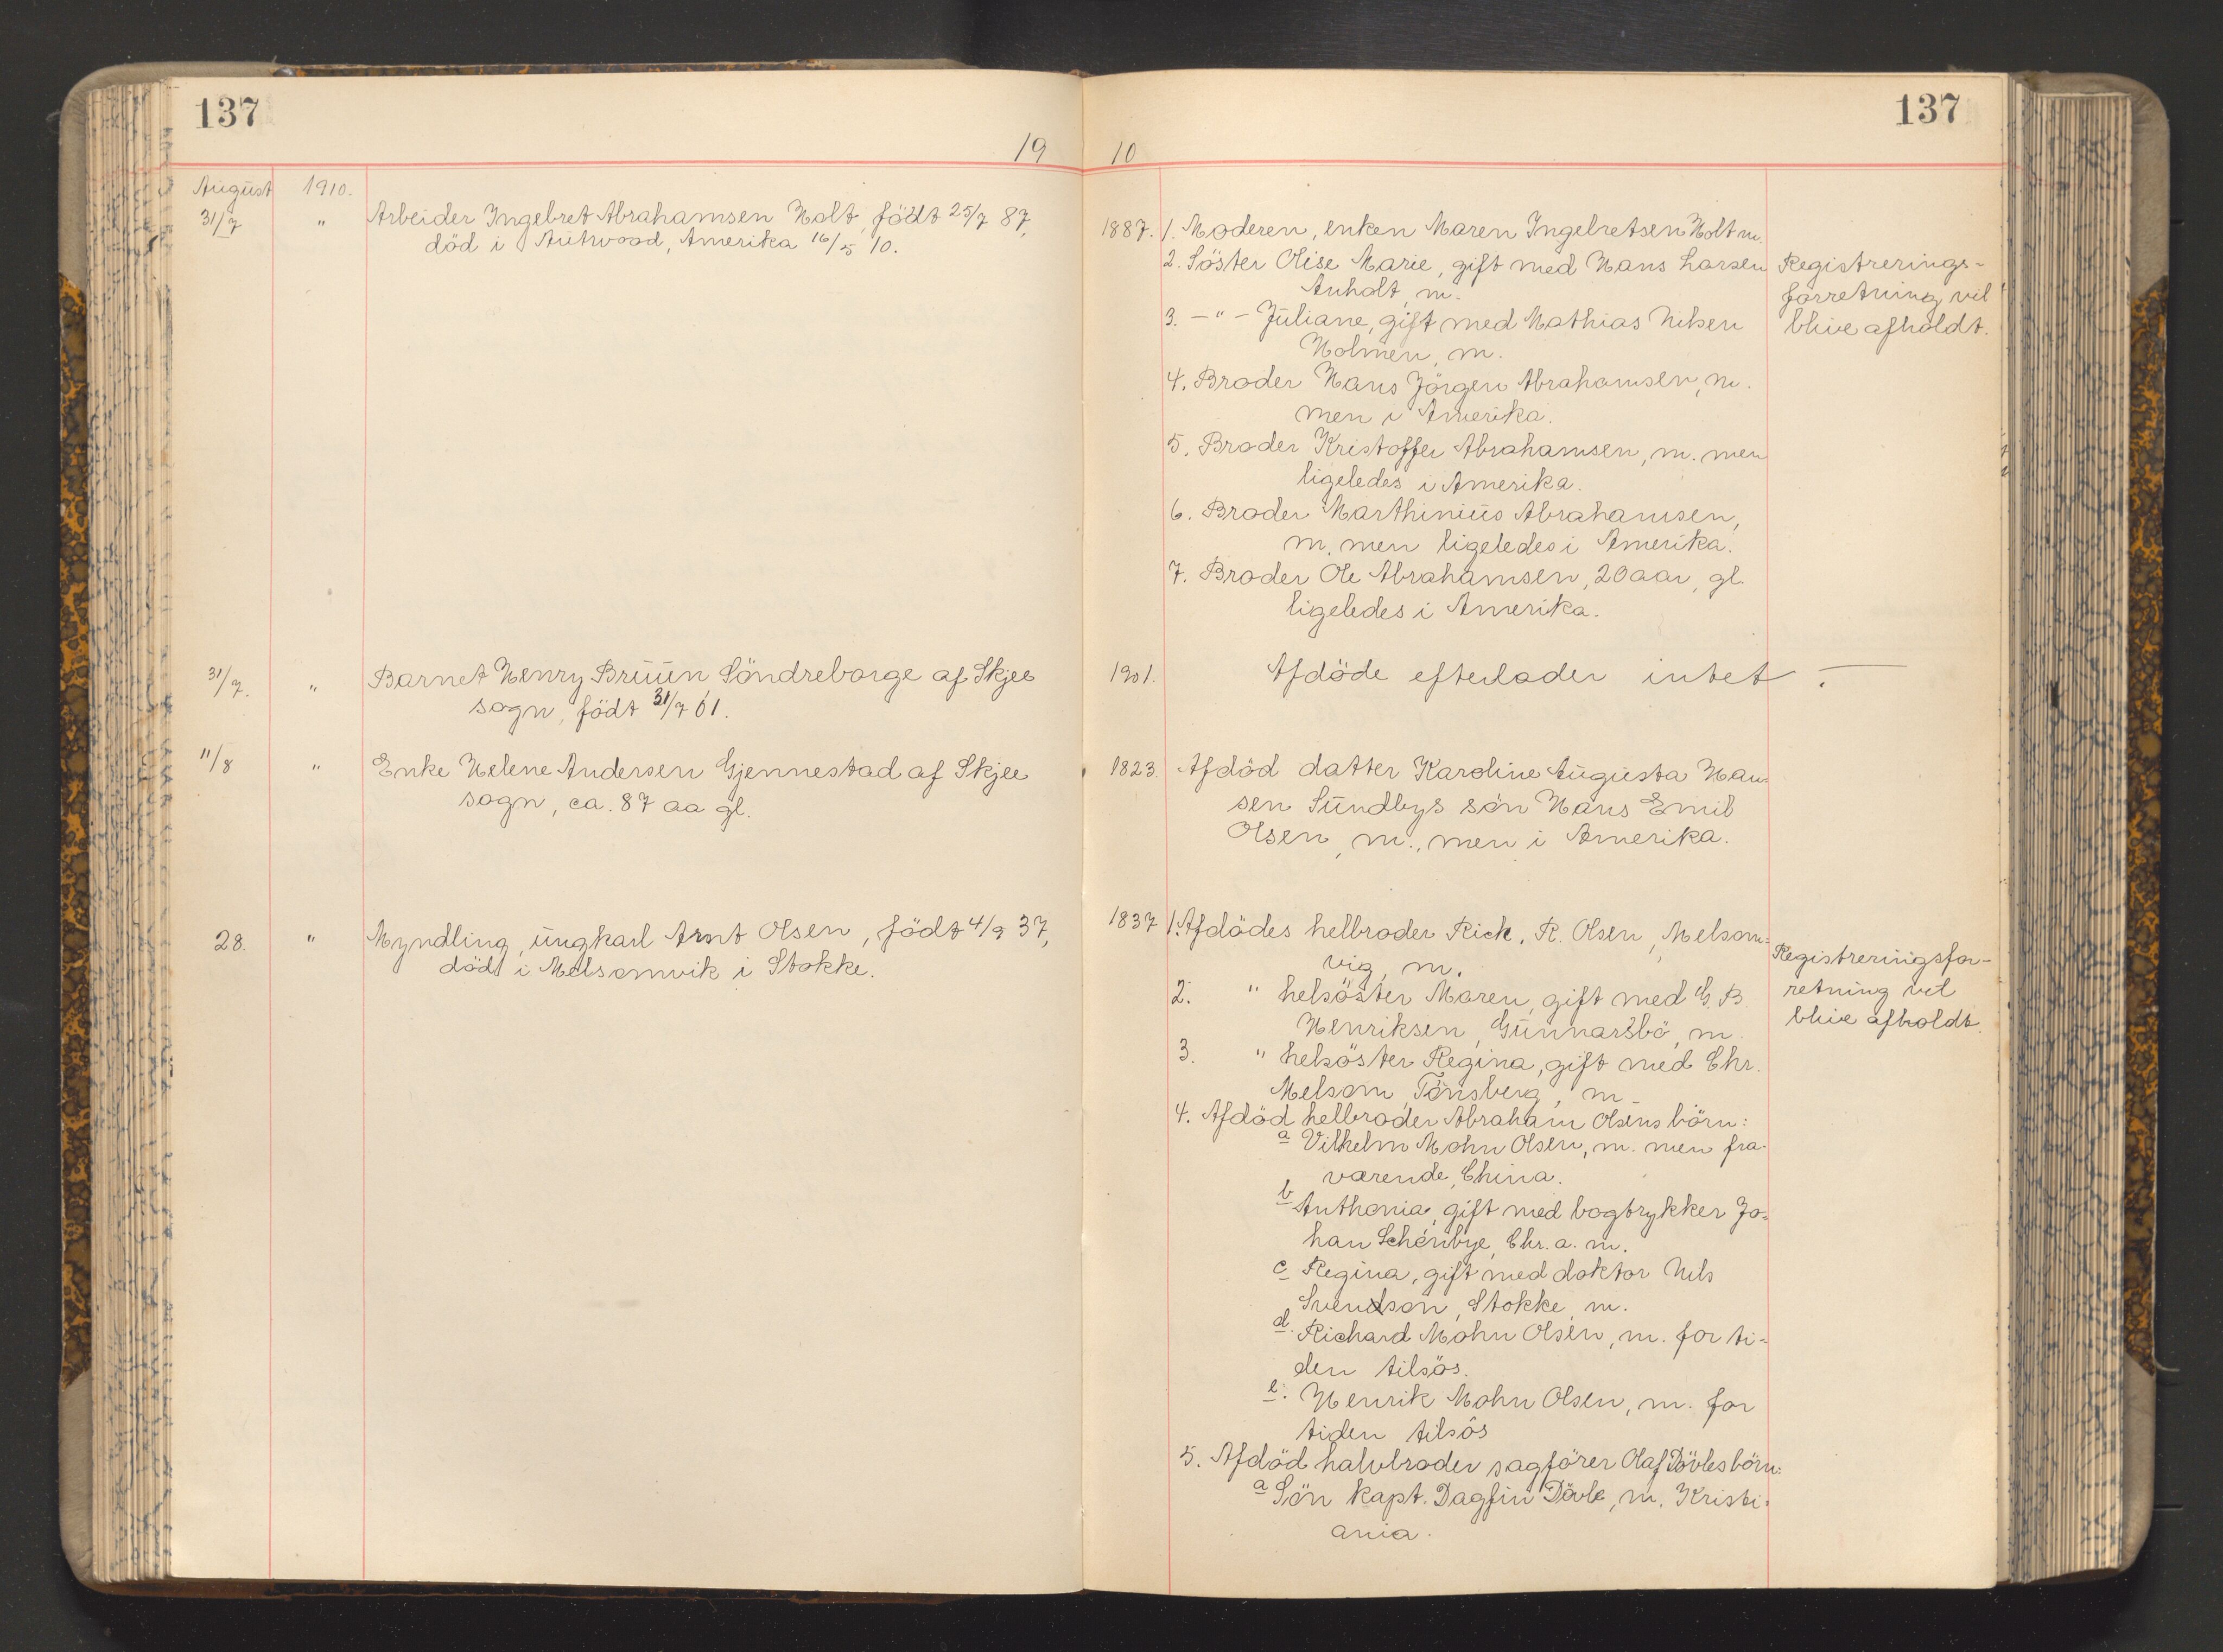 137
137
19 10
August 1910.
31/7 " Arbeider Ingebret Abrahamsen Holt, födt 25/7 87,
död i Amerika 16/5 10.
1887. 1. Moderen, enken Maren Ingebretsen Holt m.
2. Söster Olise Marie, gift med Hans Larsen
Anholt, m.
3. — " — Juliane, gift med Mathias Nilsen
Holmen, m.
4. Broder Hans Jörgen Abrahamsen, m.
men i Amerika.
5. Broder Kristoffer Abrahamsen, m. men
ligeledes i Amerika.
6. Broder Marthinius Abrahamsen,
m. men ligeledes i Amerika.
7. Broder Ole Abrahamsen, 20 aar, gl.
ligeledes i Amerika.
Registrerings-
forretning vil
blive afholdt.
31/7. " Barnet Henry Bruun Söndreborge af Skjee
sogn, födt 31/7 01.
1901. Afdöde efterlader intet.
11/8 " Enke Helene Andersen Gjennestad af Skjee
sogn, ca. 87 aa gl.
1823. Afdöd datter Karoline Augusta Han-
sen Sundbys sön Hans Emil
Olsen, m., men i Amerika.
28. " Myndling, ungkarl Arnt Olsen, födt 4/9 37,
död i Melsomvik i Stokke.
1837 1. Afdödes helbroder Rick. R. Olsen, Melsom-
vig, m.
2. " helsöster Maren, gift med G. B.
Henriksen, Gunnarsbö, m.
3. " helsöster Regina, gift med Chr.
Melsom, Tönsberg, m.
4. Afdöd helbroder Abraham Olsens börn:
a Vilhelm Mohn Olsen, m. men fra-
værende, China.
b Anthonia, gift med bogtrykker Jo-
han Schénbye, Chr.a. m.
c Regina, gift med doktor Nils
Svendson, Stokke, m.
d. Richard Mohn Olsen, m. for ti-
den tilsös.
e. Henrik Mohn Olsen, m. for
tiden tilsös
5. Afdöd halvbroder sagförer Olaf Dövles börn:
a Sön kapt. Dagfin Dövle, m. Kristi-
ania.
Registreringsfor-
retning vil
blive afholdt.